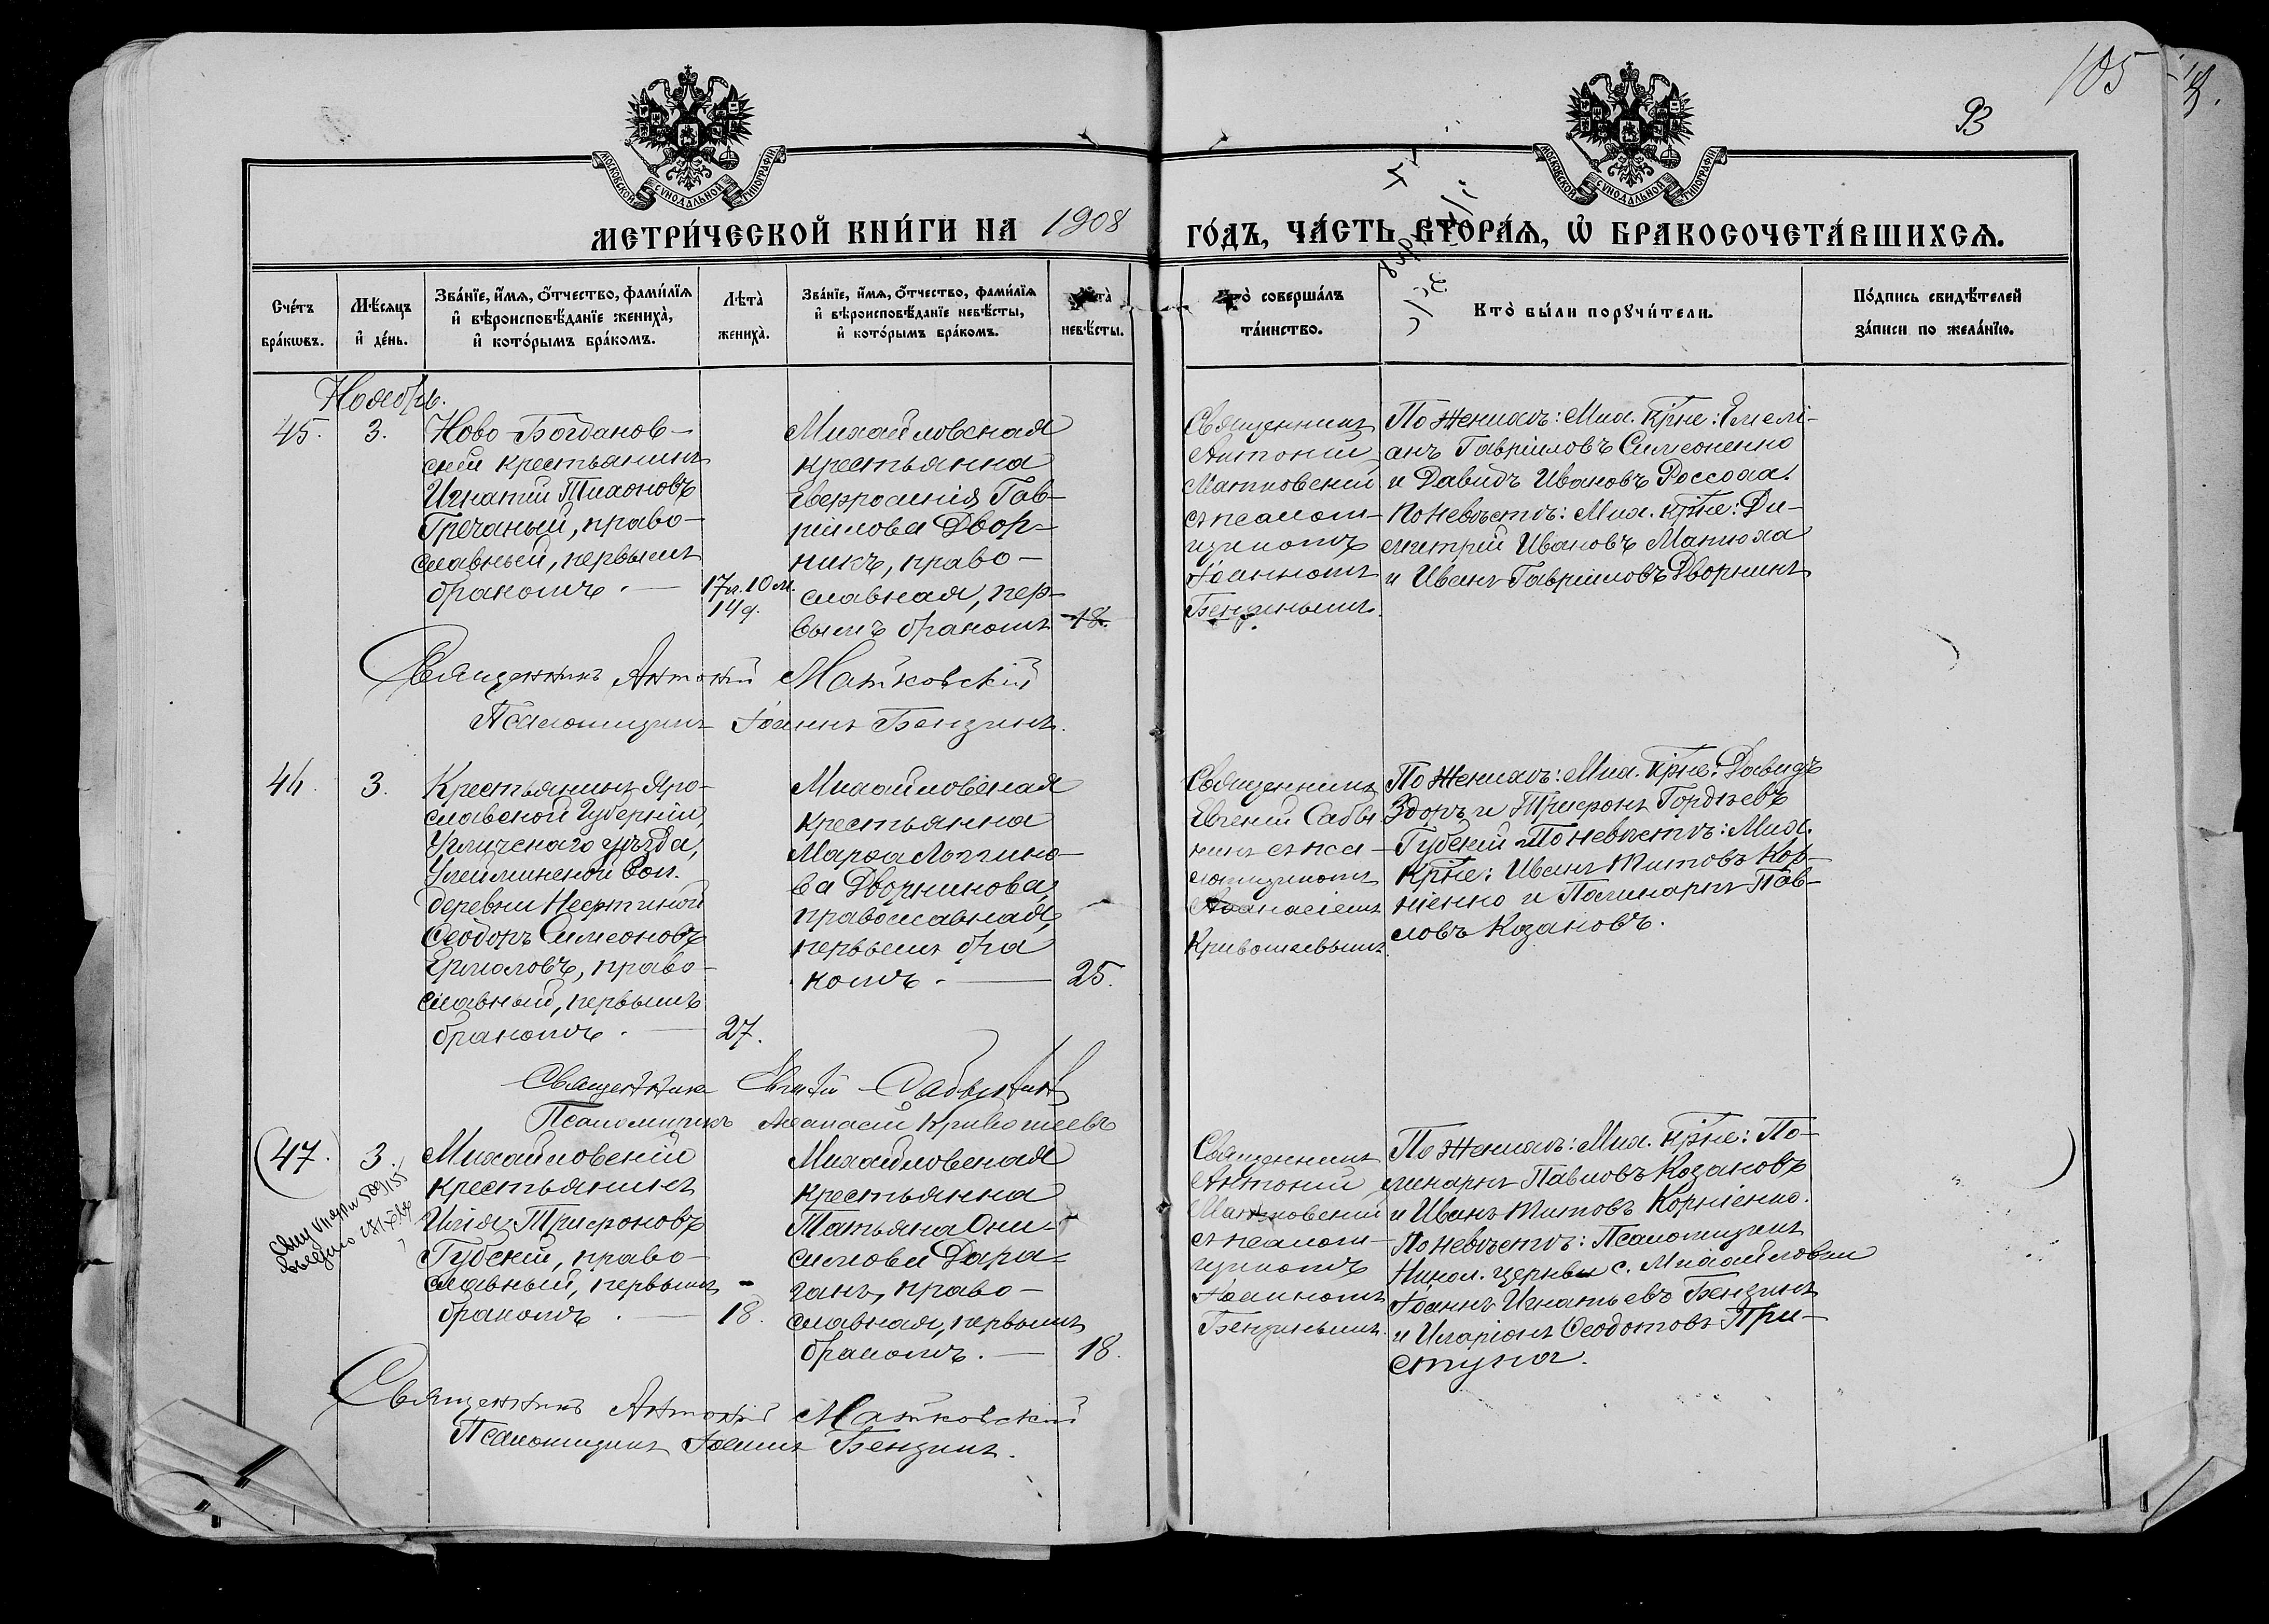 105
93
МОСКОВСКОЙ СѴНОДАЛЬНОЙ ТИПОГРАФІИ
МОСКОВСКОЙ СѴНОДАЛЬНОЙ ТИПОГРАФІИ
МЕТРИ́ЧЕСКОЙ КНИ́ГИ НА 1908 ГО́ДЪ, ЧА́СТЬ ВТОРА́Я, Ѡ҆ БРАКОСОЧЕТА́ВШИХСЯ.
Сче́тъ
бра́кѡвъ.
Мѣ́сяцъ
и҆ де́нь.
Зва́нїе, и҆́мя, ѻ҆́тчество, фами́лїя
и҆ вѣроисповѣ́данїе жениха̀,
и҆ кото́рымъ бра́комъ.
Лѣта̀
жениха̀.
Зва́нїе, и҆́мя, ѻ҆́тчество, фами́лїя
и҆ вѣроисповѣ́данїе невѣ́сты,
и҆ кото́рымъ бра́комъ.
Лѣта̀
невѣ́сты.
Кто̀ соверша́лъ
та́инство.
Кто̀ бы́ли порꙋчи́тели.
По́дпись свидѣ́телей
за́писи по жела́нїю.
Ноябрь.
45.
3.
Ново-Богданов-
скій крестьянинъ
Игнатій Тихоновъ
Гречаный, право-
славный, первымъ
бракомъ.
17л. 10м.
14д.
Михайловская
крестьянка
Евфросинія Гав-
рiилова Двор-
никъ, право-
славная, пер-
вымъ бракомъ
18.
Священникъ
Антоній
Матковскій
съ псалом-
щикомъ
Іоанномъ
Бензинымъ.
По женихѣ: Мих. крне: Емелі-
анъ Гавріиловъ Симоненко
и Давидъ Ивановъ Россоха.
По невѣстѣ: Мих. крне: Ди-
митрій Ивановъ Матюха
и Иванъ Гавріиловъ Дворникъ
Священникъ Антоній Матковскій
Псаломщикъ Іоаннъ Бензинъ.
46.
3.
Крестьянинъ Яро-
славской Губерніи,
Угличскаго уѣзда,
Улейминской Вол.
деревни Нефтиной
Ѳеодоръ Симеоновъ
Ермоловъ, право-
славный, первымъ
бракомъ.
27.
Михайловская
крестьянка
Марѳа Логгино-
ва Дворникова,
православная,
первымъ бра
комъ.
25.
Священникъ
Евгеній Сабы
нинъ съ пса-
ломщикомъ
Аѳанасіемъ
Кривошеевымъ.
По женихѣ: Мих. крне: Давидъ
Здоръ и Трифонъ Гордѣевъ
Губскій. По невѣстѣ: Мих.
крне: Иванъ Титовъ Кор-
ніенко и Полинарій Пав-
ловъ Козаковъ.
Священникъ Евгеній Сабынинъ
Псаломщикъ Аѳанасій Кривошеевъ
47.
3.
Михайловскій
крестьянинъ
Илія Трифоновъ
Губскій, право-
славный, первымъ
бракомъ.
18.
Михайловская
крестьянка
Татьяна Они-
симова Дара-
ганъ, право-
славная, первымъ
бракомъ.
18.
Священникъ
Антоній
Матковскій
съ псалом-
щикомъ
Іоанномъ
Бензинымъ.
По женихѣ: Мих. крне: По-
линарій Павловъ Козаковъ
и Иванъ Титовъ Корніенко.
По невѣстѣ: Псаломщикъ
Никол. церкви с. Михайловки
Іоаннъ Игнатьевъ Бензинъ
и Иларіонъ Ѳеодотовъ При-
ступа.
Священникъ Антоній Матковскій
Псаломщикъ Іоаннъ Бензинъ.